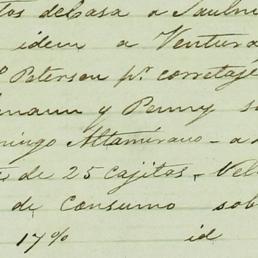 tos de Casa a Saulni
idem a Ventura
Petersen pr. corretaje
mann y Penny su
mingo Altamirano - a
s de 25 cajitas, Vel
de Consumo sob
17% id